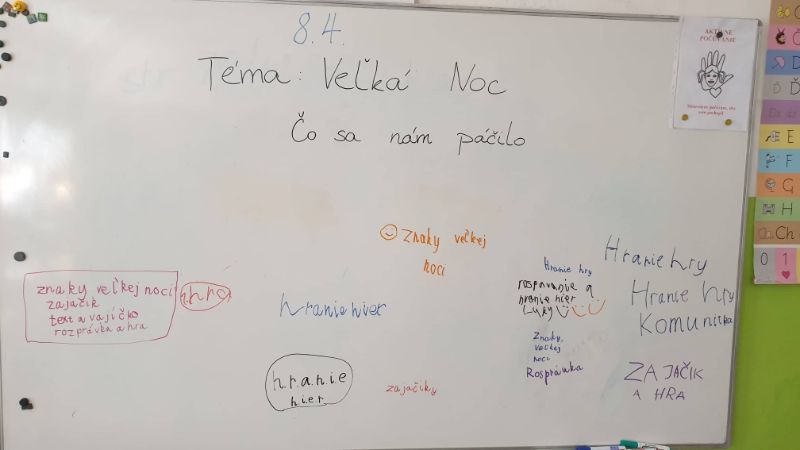 8.4.
Téma: Veľká Noc
Čo sa nám páčilo
AKTÍVNE
POČÚVANIE
☺ znaky veľkej
noci
znaky veľkej noci
zajačik
text a vajíčko
rozprávka a hra
hra
hranie hier
h.r.a.n.i.e
h.i.e.r
zajačiky
Hranie hry
rospravanie a
hranie hier
Luky
Znaky
veľkej
noci
Rosprávka
Hranie hry
Hranie hry
Komunitka
ZAJAČIK
A HRA
Č
D
Ď
E
F
G
H
Ch
0 1